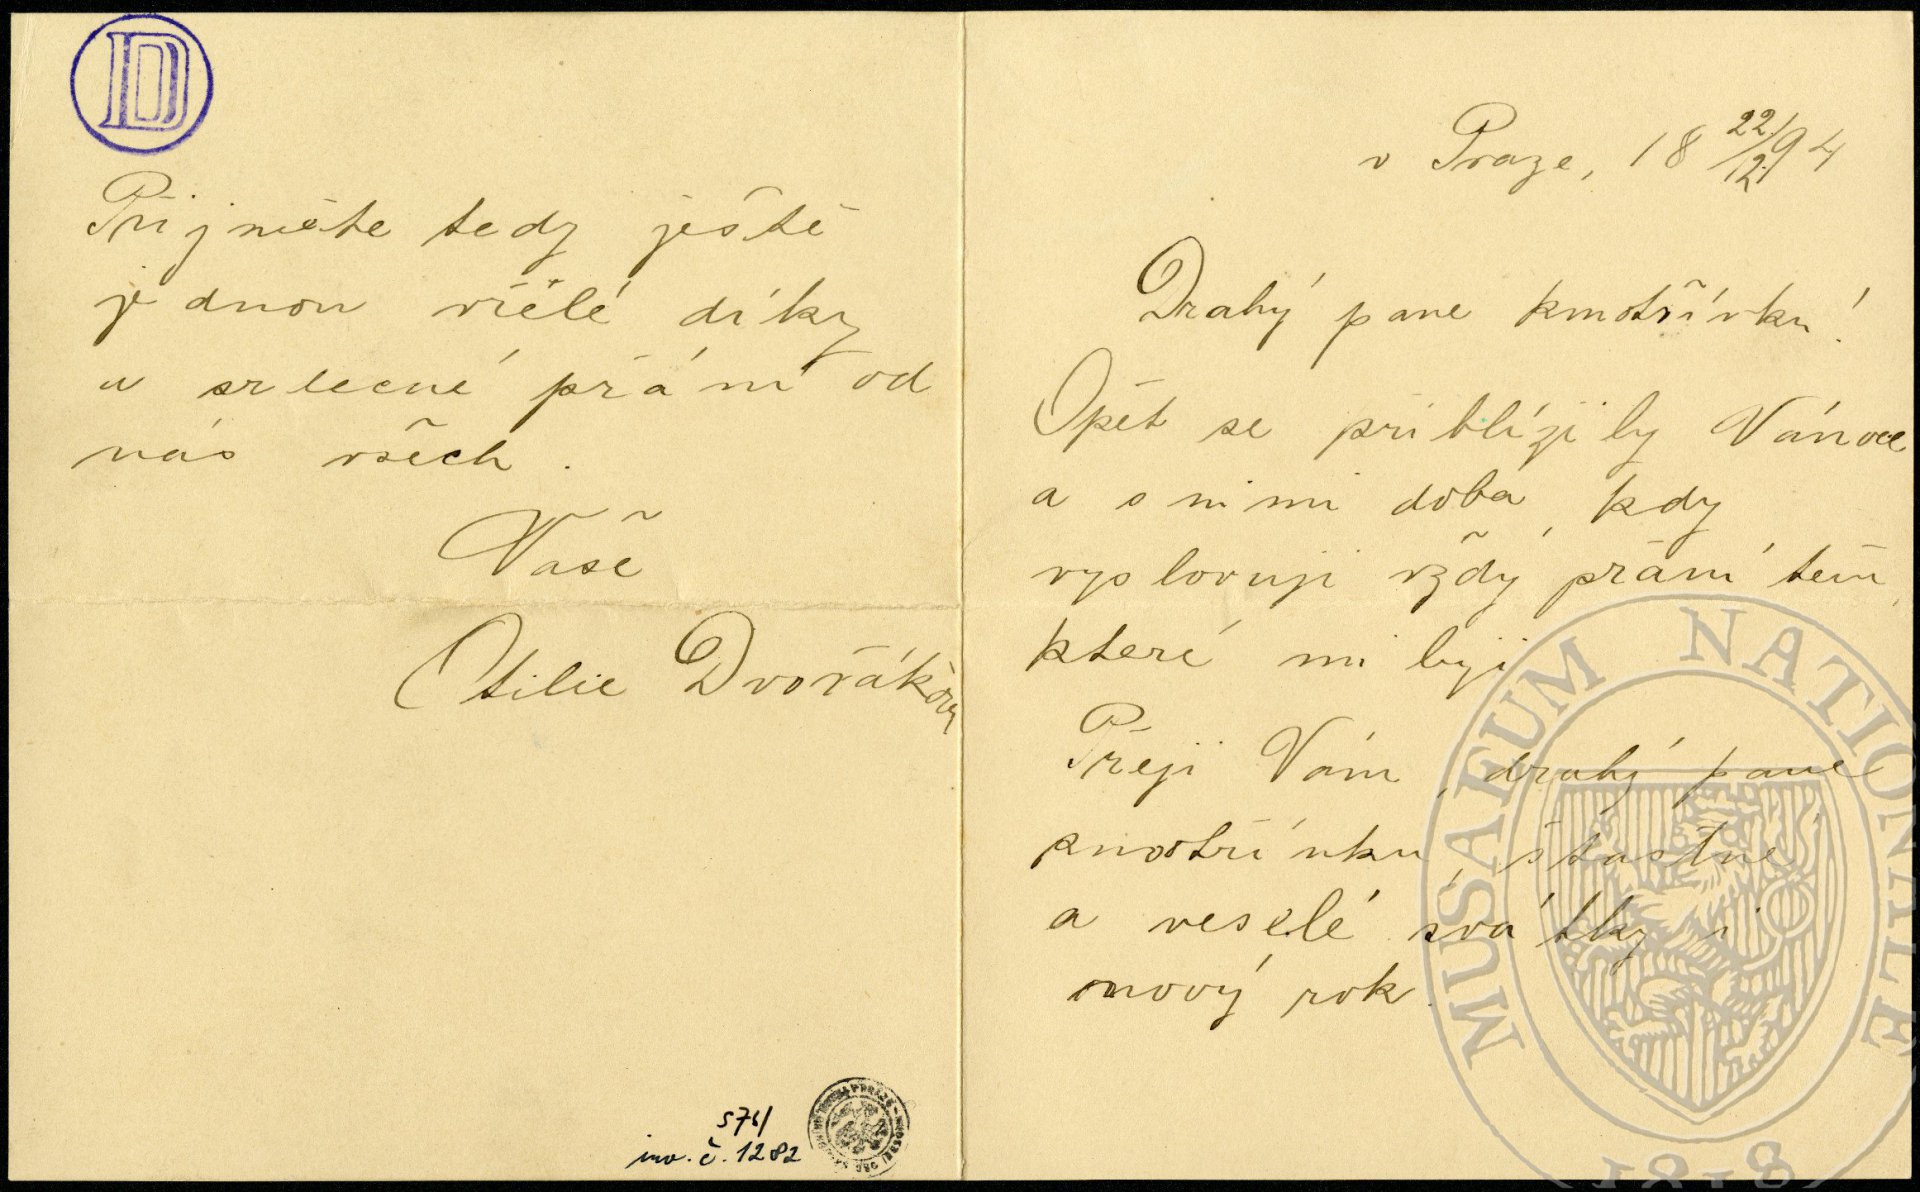 v Praze, 18 22/12 94
Drahý pane kmotřínku!
Opět se přiblížily Vánoce
a s nimi doba, kdy
vyslovuji vždy přání těm,
které miluji
Přeji Vám, drahý pane
kmotřínku, šťastné
a veselé svátky i
nový rok.
D
Přijměte tedy ještě
jednou vřelé díky
a srdečné přání od
nás všech.
Vaše
Otilie Dvořákova
S 76/
inv. č. 1282
MUSAEUM NATIONALE
1818